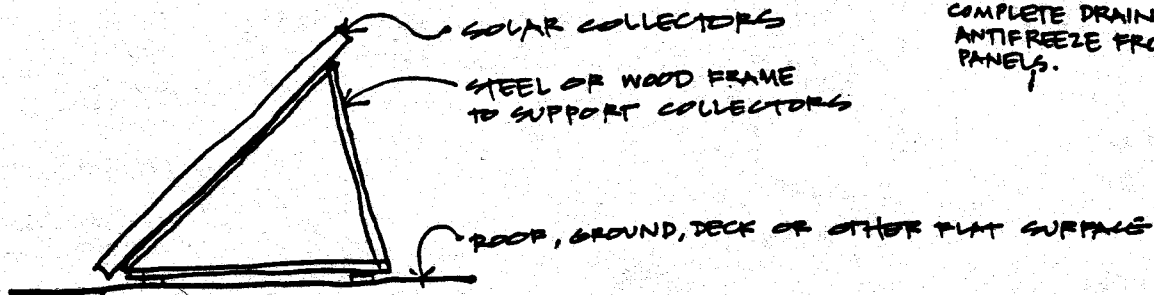 SOLAR COLLECTORS
STEEL OR WOOD FRAME
TO SUPPORT COLLECTORS
ROOF, GROUND, DECK OR OTHER FLAT SURFACE
COMPLETE DRAIN
ANTIFREEZE FRO
PANELS.